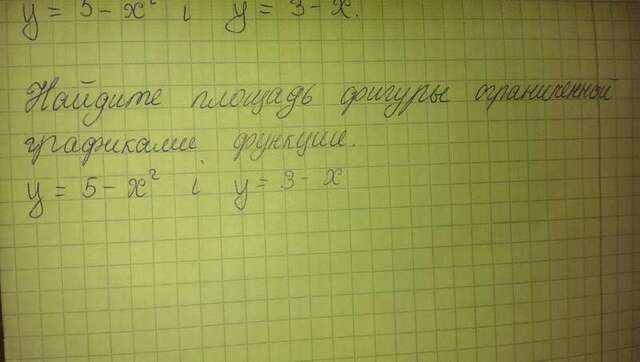 y = 5 - x² i y = 3 - x.
Найдите площадь фигуры ограниченной
графиками функции.
y = 5 - x² i y = 3 - x